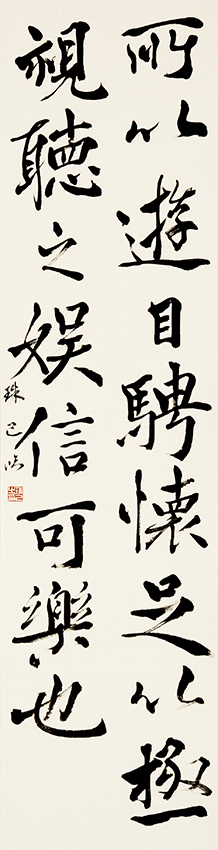 所以遊目騁懷足以極
視聽之娯信可樂也
珠己臨